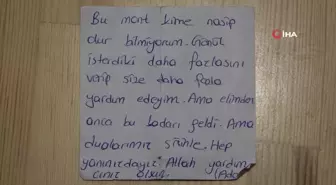 İHA
Bu mont kime nasip
olur bilmiyorum. Gönül
isterdiki daha fazlasını
verip size daha fazla
yardım edeyim. Ama elimden
anca bu kadarı geldi. Ama
dualarımız sizinle. Hep
yanınızdayız. Allah yardım
cınız olsun.